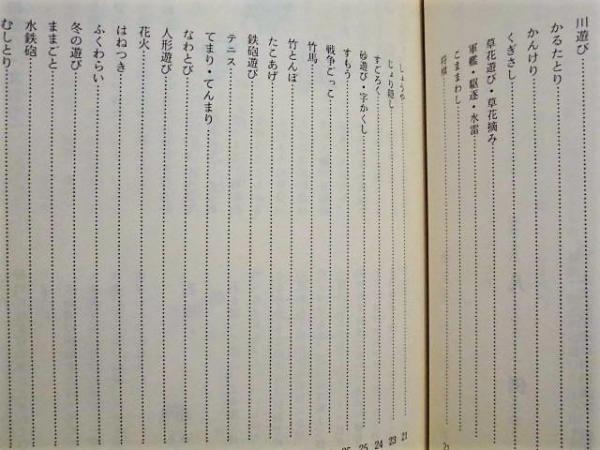 川遊び
かるたとり
かんけり
くぎさし
草花遊び・草花摘み
軍艦・駆逐・水雷
こままわし
将棋
しょうや
じょり隠し
すごろく
砂遊び・字かくし
すもう
戦争ごっこ
竹馬
竹とんぼ
たこあげ
鉄砲遊び
テニス
てまり・てんまり
なわとび
人形遊び
花火
はねつき
ふくわらい
冬の遊び
ままごと
水鉄砲
むしとり
21
21
23
24
25